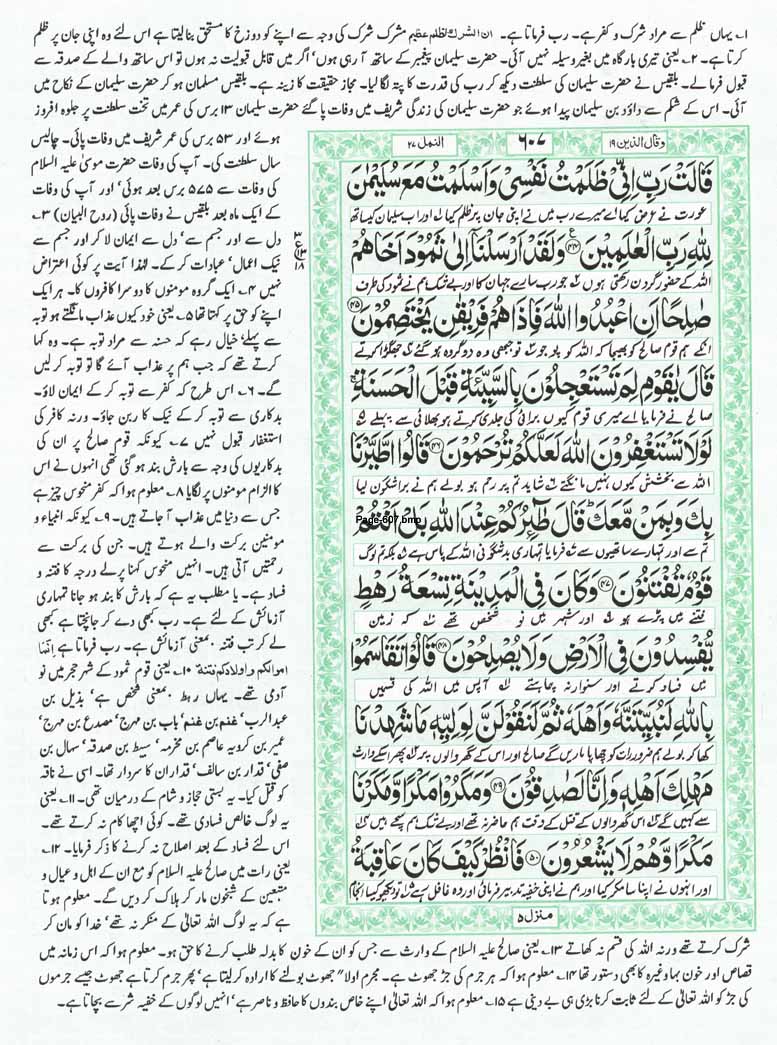 ۱؎ یہاں ظلم سے مراد شرک و کفر ہے۔ رب فرماتا ہے۔ ان الشرک لظلم عظیم مشرک شرک کی وجہ سے اپنے کو دوزخ کا مستحق بنا لیتا ہے اس لئے وہ اپنی جان پر ظلم
کرتا ہے۔ ۲؎ یعنی تیری بارگاہ میں بغیر وسیلہ نہیں آئی۔ حضرت سلیمان پیغمبر کے ساتھ آ رہی ہوں، اگر میں قابل قبولیت نہ ہوں تو اس ساتھ والے کے صدقہ سے
قبول فرما لے۔ بلقیس نے حضرت سلیمان کی سلطنت دیکھ کر رب کی قدرت کا پتہ لگا لیا۔ مجاز حقیقت کا زینہ ہے۔ بلقیس مسلمان ہو کر حضرت سلیمان کے نکاح میں
آئی۔ اس کے شکم سے داؤد بن سلیمان پیدا ہوئے جو حضرت سلیمان کی زندگی شریف میں وفات پا گئے حضرت سلیمان ۱۳ برس کی عمر میں تخت سلطنت پر جلوہ افروز
وقال الذین ۱۹
۶۰۷
النمل ۲۷
قَالَتْ رَبِّ اِنِّیْ ظَلَمْتُ نَفْسِیْ وَاَسْلَمْتُ مَعَ سُلَیْمٰنَ
عورت نے عرض کی اے میرے رب میں نے اپنی جان پر ظلم کیا ۱؎ اور اب سلیمان کیساتھ
لِلّٰهِ رَبِّ الْعٰلَمِیْنَ ﴿۴۴﴾ وَلَقَدْ اَرْسَلْنَاۤ اِلٰی ثَمُوْدَ اَخَاهُمْ
اللہ کے حضور گردن رکھتی ہوں ۲؎ جو رب سارے جہان کا اور بے شک ہم نے ثمود کی طرف
صٰلِحًا اَنِ اعْبُدُوا اللّٰهَ فَاِذَا هُمْ فَرِیْقٰنِ یَخْتَصِمُوْنَ ﴿۴۵﴾
انکے ہم قوم صالح کو بھیجا کہ اللہ کو پوجو ۳؎ تو جبھی وہ دو گروہ ہو گئے ۴؎ جھگڑا کرتے
قَالَ یٰقَوْمِ لِمَ تَسْتَعْجِلُوْنَ بِالسَّیِّئَةِ قَبْلَ الْحَسَنَةِ
صالح نے فرمایا اے میری قوم کیوں برائی کی جلدی کرتے ہو بھلائی سے پہلے ۵؎
لَوْلَا تَسْتَغْفِرُوْنَ اللّٰهَ لَعَلَّكُمْ تُرْحَمُوْنَ ﴿۴۶﴾ قَالُوا اطَّیَّرْنَا
اللہ سے بخشش کیوں نہیں مانگتے ۶؎ شاید تم پر رحم ہو بولے ہم نے برا شگون لیا
بِكَ وَبِمَنْ مَّعَكَ ؕ قَالَ طٰٓئِرُكُمْ عِنْدَ اللّٰهِ بَلْ اَنْتُمْ
تم سے اور تمہارے ساتھیوں سے ۷؎ فرمایا تمہاری بدشگونی اللہ کے پاس ہے ۸؎ بلکہ تم لوگ
قَوْمٌ تُفْتَنُوْنَ ﴿۴۷﴾ وَكَانَ فِی الْمَدِیْنَةِ تِسْعَةُ رَهْطٍ
فتنے میں پڑے ہو ۹؎ اور شہر میں نو شخص تھے ۱۰؎ کہ زمین
یُّفْسِدُوْنَ فِی الْاَرْضِ وَلَا یُصْلِحُوْنَ ﴿۴۸﴾ قَالُوْا تَقَاسَمُوْا
میں فساد کرتے اور سنوار نہ چاہتے ۱۱؎ آپس میں اللہ کی قسمیں
بِاللّٰهِ لَنُبَیِّتَنَّهٗ وَاَهْلَهٗ ثُمَّ لَنَقُوْلَنَّ لِوَلِیِّهٖ مَا شَهِدْنَا
کھا کر بولے ہم ضرور رات کو چھاپا ماریں گے صالح اور اس کے گھر والوں پر ۱۲؎ پھر اسکے وارث
مَهْلِكَ اَهْلِهٖ وَاِنَّا لَصٰدِقُوْنَ ﴿۴۹﴾ وَمَكَرُوْا مَكْرًا وَّمَكَرْنَا
سے کہیں گے ۱۳؎ اس گھر والوں کے قتل کے وقت ہم حاضر نہ تھے اور بے شک ہم سچے ہیں ۱۴؎
مَكْرًا وَّهُمْ لَا یَشْعُرُوْنَ ﴿۵۰﴾ فَانْظُرْ كَیْفَ كَانَ عَاقِبَةُ
اور انہوں نے اپنا سا مکر کیا اور ہم نے اپنی خفیہ تدبیر فرمائی اور وہ غافل رہے ۱۵؎ تو دیکھو کیسا انجام
منزل ۵
Page-607.bmp
ہوئے اور ۵۳ برس کی عمر شریف میں وفات پائی۔ چالیس
سال سلطنت کی۔ آپ کی وفات حضرت موسیٰ علیہ السلام
کی وفات سے ۵۷۵ برس بعد ہوئی، اور آپ کی وفات
کے ایک ماہ بعد بلقیس نے وفات پائی (روح البیان) ۳؎
دل سے اور جسم سے، دل سے ایمان لا کر اور جسم سے
نیک اعمال، عبادات کر کے۔ لہٰذا آیت پر کوئی اعتراض
نہیں ۴؎ ایک گروہ مومنوں کا دوسرا کافروں کا۔ ہر ایک
اپنے کو حق پر کہتا تھا ۵؎ یعنی خود کیوں عذاب مانگتے ہو توبہ
سے پہلے، خیال رہے کہ حسنہ سے مراد توبہ ہے۔ وہ کہا
کرتے تھے کہ جب ہم پر عذاب آئے گا تو توبہ کر لیں
گے۔ ۶؎ اس طرح کہ کفر سے توبہ کر کے ایمان لاؤ۔
بدکاری سے توبہ کر کے نیک کار بن جاؤ۔ ورنہ کافر کی
استغفار قبول نہیں ۷؎ کیونکہ قوم صالح پر ان کی
بدکاریوں کی وجہ سے بارش بند ہو گئی تھی انہوں نے اس
کا الزام مومنوں پر لگایا ۸؎ معلوم ہوا کہ کفر منحوس چیز ہے
جس سے دنیا میں عذاب آ جاتے ہیں۔ ۹؎ کیونکہ انبیاء و
مومنین برکت والے ہوتے ہیں۔ جن کی برکت سے
رحمتیں آتی ہیں۔ انہیں منحوس کہنا پرلے درجہ کا فتنہ و
فساد ہے۔ یا مطلب یہ ہے کہ بارش کا بند ہو جانا تمہاری
آزمائش کے لئے ہے۔ رب کبھی دے کر جانچتا ہے کبھی
لے کر تب فتنہ بمعنی آزمائش ہے۔ رب فرماتا ہے انما
اموالکم واولادکم فتنۃ ۱۰؎ یعنی قوم ثمود کے شہر حجر میں نو
آدمی تھے۔ یہاں رہط بمعنی شخص ہے، ہذیل بن
عبد الرب، غنم بن غنم، باب بن مہرج، مصدع بن مہرج،
عمیر بن کردبہ عاصم بن مخرمہ، سبیط بن صدقہ، سہال بن
صفی، قدار بن سالف، قدار ان کا سردار تھا۔ اسی نے ناقہ
کو قتل کیا۔ یہ بستی حجاز و شام کے درمیان تھی۔ ۱۱؎ یعنی
یہ لوگ خالص فسادی تھے۔ کوئی اچھا کام نہ کرتے تھے۔
اس لئے فساد کے بعد اصلاح نہ کرنے کا ذکر فرمایا۔ ۱۲؎
یعنی رات میں صالح علیہ السلام کو مع ان کے اہل و عیال و
متبعین کے شبخون مار کر ہلاک کر دیں گے۔ معلوم ہوتا
ہے کہ یہ لوگ اللہ تعالیٰ کے منکر نہ تھے، خدا کو مان کر
شرک کرتے تھے ورنہ اللہ کی قسم نہ کھاتے ۱۳؎ یعنی صالح علیہ السلام کے وارث سے جس کو ان کے خون کا بدلہ طلب کرنے کا حق ہو۔ معلوم ہوا کہ اس زمانہ میں
قصاص اور خون بہا وغیرہ کا بھی دستور تھا ۱۴؎ معلوم ہوا کہ ہر جرم کی جڑ جھوٹ ہے۔ مجرم اولاً جھوٹ بولنے کا ارادہ کر لیتا ہے، پھر جرم کرتا ہے جھوٹ جیسے جرموں
کی جڑ کو اللہ تعالیٰ کے لئے ثابت کرنا بڑی ہی بے دینی ہے ۱۵؎ معلوم ہوا کہ اللہ تعالیٰ اپنے خاص بندوں کا حافظ و ناصر ہے، انہیں لوگوں کے خفیہ شر سے بچاتا ہے۔